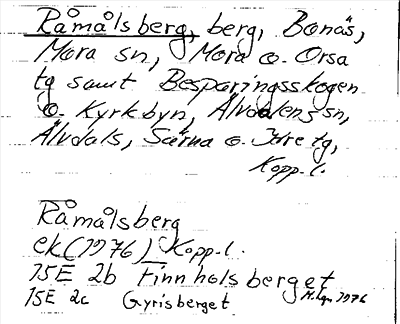 Råmålsberg, berg, Bonäs,
Mora sn, Mora o. Orsa
tg samt Besparingsskogen
o. Kyrkbyn, Älvdalens sn,
Älvdals, Särna o. Idre tg,
Kopp. l.
Råmålsberg
ek (1976) Kopp. l.
15E 2b Finnholsberget
15E 2c Gyrisberget